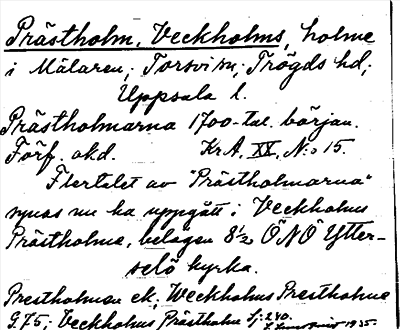 Prästholm, Veckholms, holme
i Mälaren; Torsvi sn; Trögds hd;
Uppsala l.
Prästholmarna 1700-tal. början.
Förf. okd. Kr.A. XX, N:o 15.
Flertalet av "Prästholmarna"
synas nu ha uppgått i Veckholms
Prästholme, belägen 8½ ÖNÖ Ytter-
selö kyrka.
Prestholmen ek; Weckholms Prestholme
G.75; Veckholms Prästholm Sj: 240.
1935.